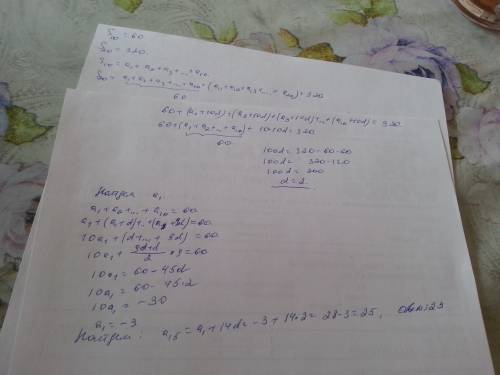 S₁₀ = 60
S₂₀ = 320.
S₁₀ = a₁ + a₂ + a₃ + ... + a₁₀
S₂₀ = a₁ + a₂ + a₃ + ... + a₁₀ + (a₁₁ + a₁₂ + a₁₃ + ... + a₂₀) = 320
60
60 + (a₁+10d) + (a₂+10d) + (a₃+10d) + ... + (a₁₀+10d) = 320
60 + (a₁ + a₂ + ... + a₁₀) + 10·10d = 320
60
100d = 320-60-60
100d = 320-120
100d = 200
d = 2
Найдем a₁
a₁ + a₂ + ... + a₁₀ = 60
a₁ + (a₁+d) + ... + (a₁+9d) = 60
10a₁ + (d + ... + 9d) = 60
10a₁ + 9d+d/2 · 9 = 60
10a₁ = 60 - 45d
10a₁ = 60 - 45·2
10a₁ = -30
a₁ = -3
Найдем: a₁₅ = a₁ + 14d = -3 + 14·2 = 28-3 = 25, Ответ: 25